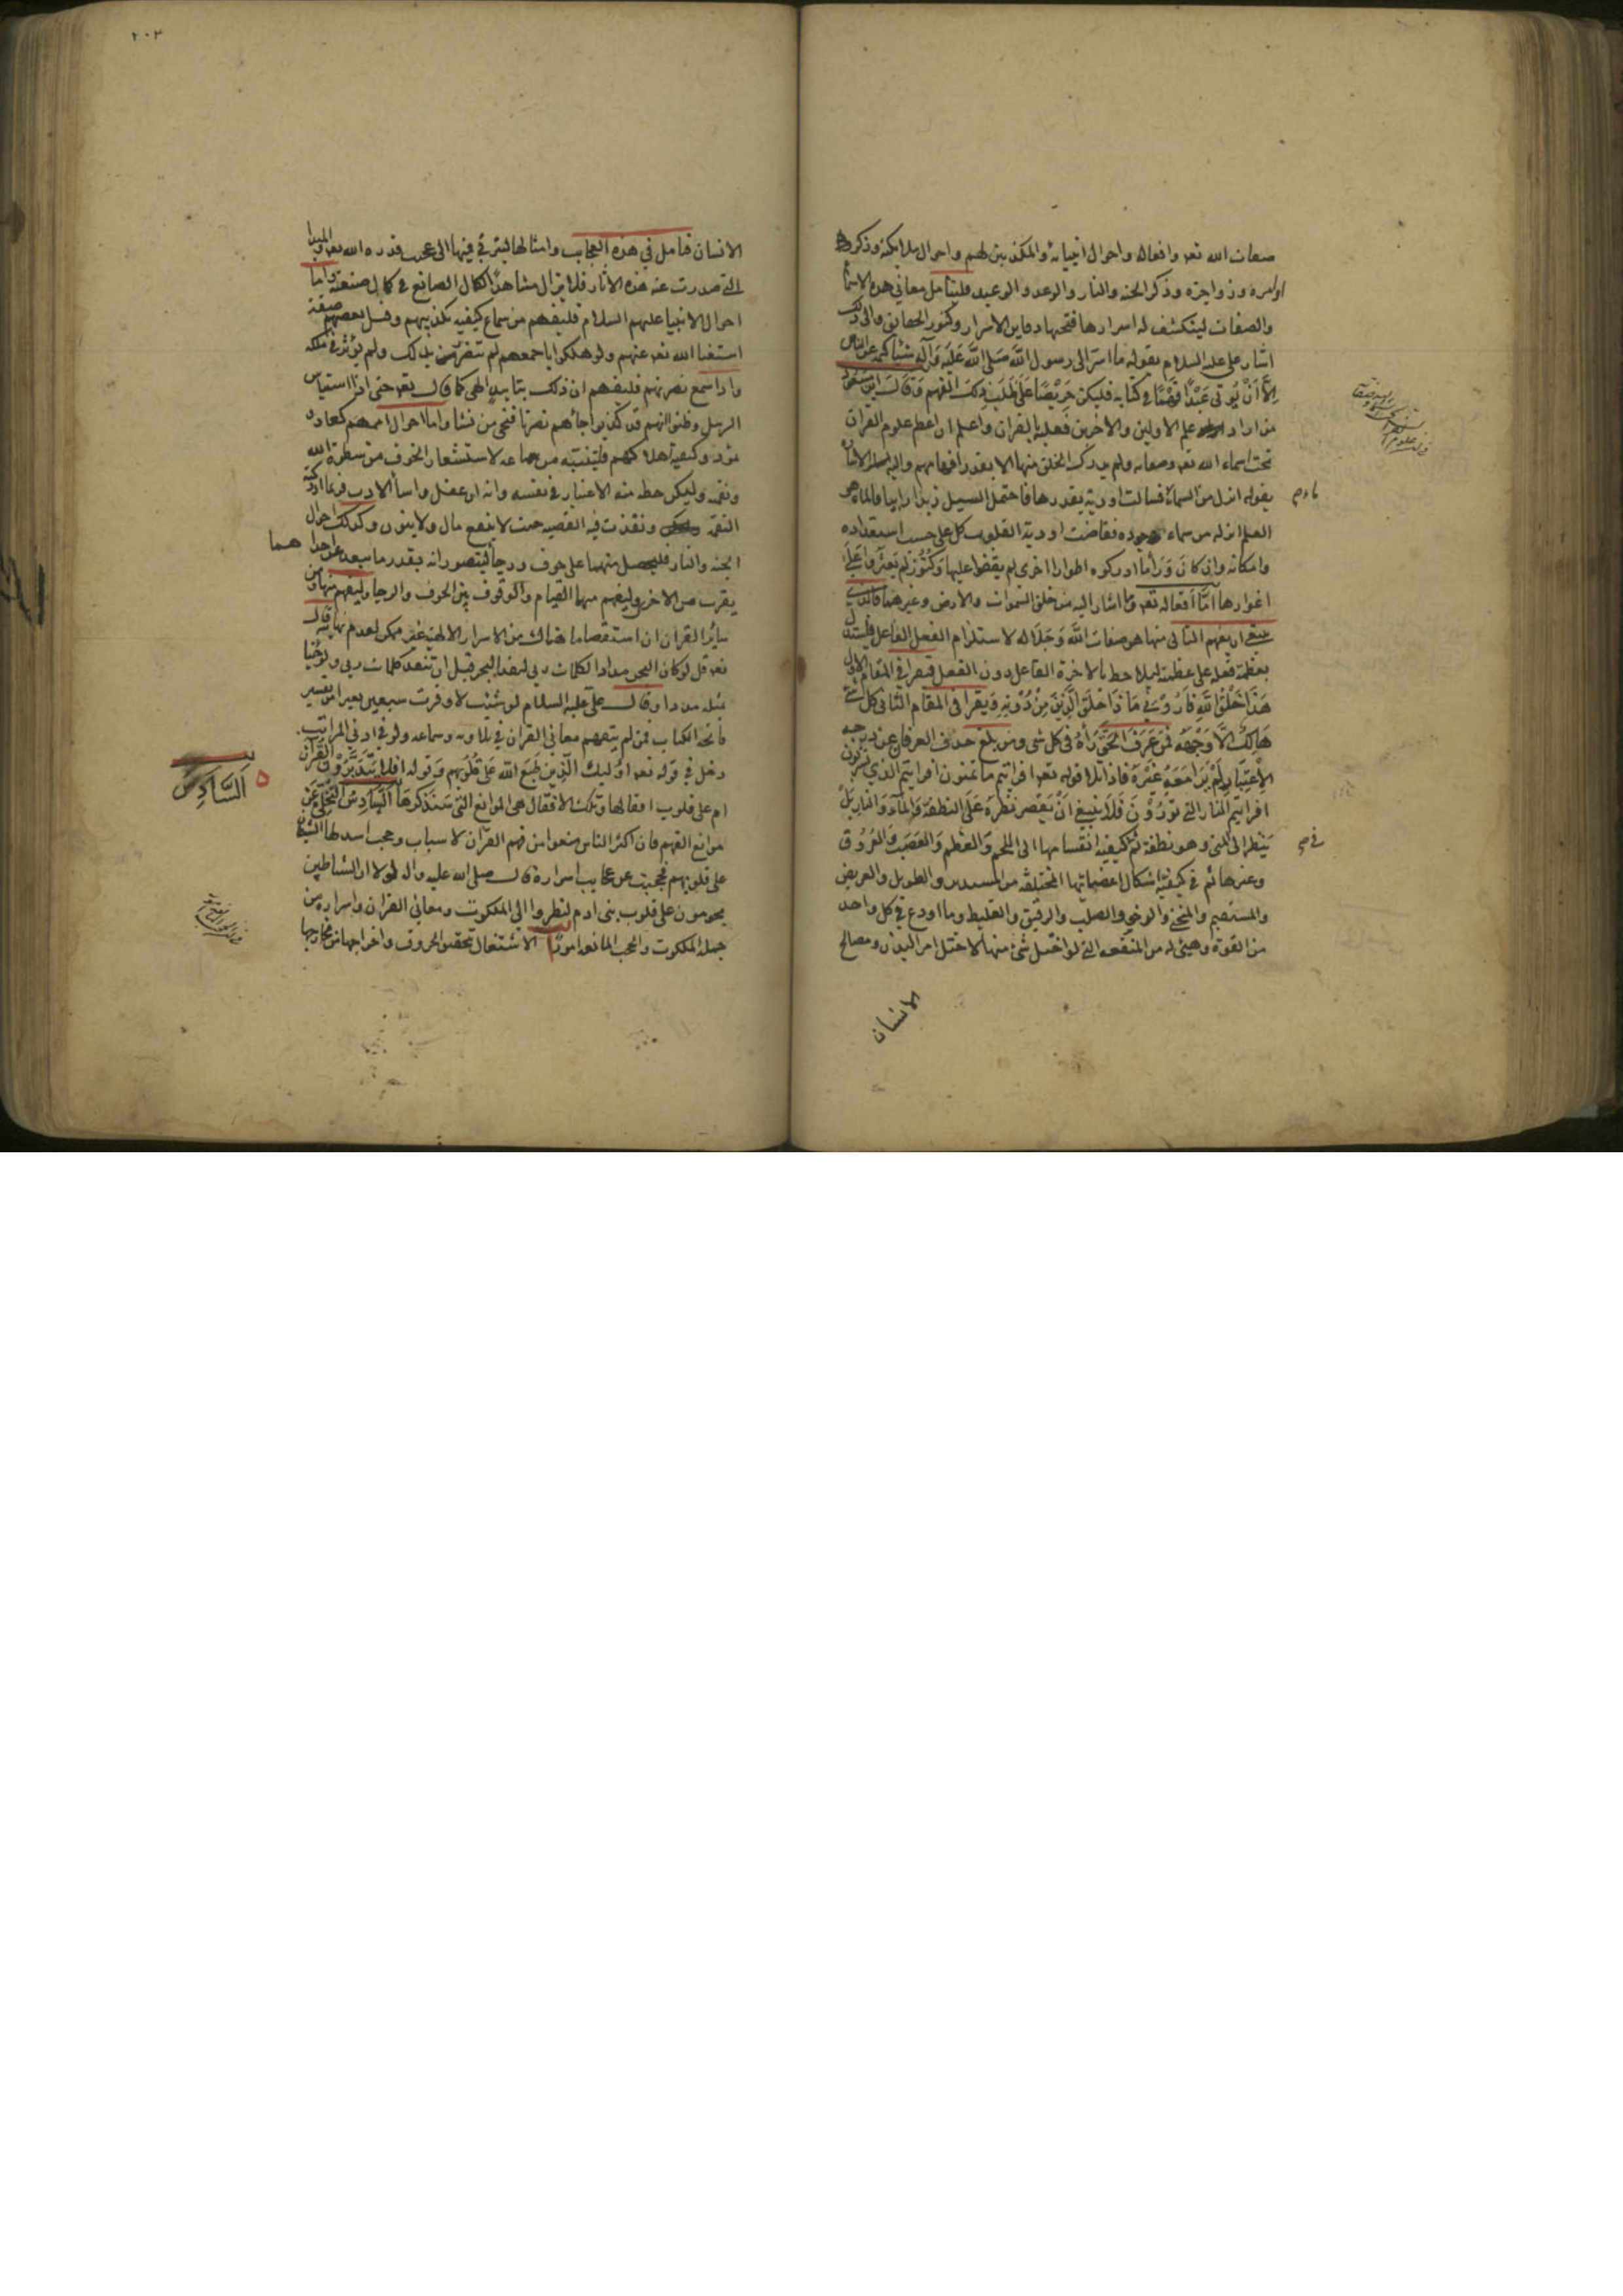 صفات الله تعـ وافعاله واحوال انبيائه والمكذبين لهم واحوال ملائكته وذكر
اوامره وزواجره وذكر الجنه والنار والوعد والوعيد فليتامل معاني هذه الاسما
والصفات لينكشف له اسرارها فتحتها دفاين الاسرار وكنوز الحقايق والى ذلك
اشار على عليه السلام بقوله ما اسر الى رسول الله صَلى الله عَلَيه وَآله شيئا كتمه عن الناس
اِلاَّ اَنْ يُوتى عَبْدًا فَهْمًا في كتابه فليكن حَرِيْصًا عَلَى طَلَب ذلكَ الفهم وَقالَ ابن مَسعود
من اراد علم الاولين والاخرين فعليه بالقران واعلم ان اعظم علوم القران
تحت اسماء الله تعـ وصفاته ولم يدرك الخلق منها الا بقدر افهامهم واليه الاشارة
بقوله انزل من السماء ماء فسالت اودية بقدرها فاحتمل السيل زبدا رابيا والماء هو
العلم انزله من سماء جوده ففاضت اودية القلوب كل على حسب استعداده
وامكانه وان كان وَرَاء ما ادركوه اطوارا اخرى لم يقفوا عليها وَكُنُوز لم يَعثروا عَلَى
اغوارها امّا اَفعاله تعـ وما اشار اليه من خلق السموات والارض وغيرهما فالذي
ينبغي ان يفهم التالى منها هو صفات الله وَجَلَاله لاستلزام الفعل الفاعل فيستدل
بعظمة فعله على عظمته ليلاحظ بالاخرة الفاعل دون الفعل فيقرا في المقام الاول
هَذَا خَلْقُ اللهِ فَاَرُوْنِي مَاذَا خَلَقَ الَّذِيْنَ مِنْ دُوْنِهِ وَيقرا في المقام الثانى كل شي
هَالِكٌ اِلَّا وَجْهَهُ فمن عَرَفَ الحَقَّ رَآهُ في كل شي ومن بلغ حد العرفان عن درجه
الاِعْتِبَارِ لَمْ يَرَ مَعَهُ غَيْرَهُ فاذا تلا قوله تعـ افرايتم ما تمنون افرايتم الماء الذي تشربون
افرايتم النار التي تورُوْنَ فَلَا ينبغي انْ يَقْصر نظرَه عَلَى النطفة وَالمآء وَالنار بَلْ
ينظر الى المنى وهو نطفة ثم في كيفية انقسامها الى اللحم وَالعَظم وَالعَصَب وَالعُرُوق
وغيرها ثم في كيفيّة اشكال اعضائها المختلفه من المستدير والطويل والعريض
والمستقيم والمنحنى والرخو والصلب والرقيق والغليظ وما اودع في كل واحد
من القوة وهيئ له من المنفعه التي لو اختل شئ منها لاختل امر البدن ومصالح
الانسان
٢٠٣
الانسان فتامل في هذه العجايب وامثالها ليترقى فيها الى عجب قدره الله تعـ والمبدا
التى صدرت عنه هذه الاثار فلا يزال مشاهدًا لكمال الصانع في كمال صنعته واما
احوال الانبيا عليهم السلام فليفهم من سماع كيفيه تكذيبهم وقتل بعضهم صفة
استغنا الله تعـ عنهم ولو هلكوا باجمعهم لم يتضرر بذلك ولم يؤثر في ملكه
واذا سمع نصرتهم فليفهم ان ذلك بتاييد الهى كما قال تعـ حتى اذا استياس
الرسل وظنوا انهم قد كذبوا جاءهم نصرنا فنجى من نشا واما احوال اممهم كعاد و
ثمود وكيفيه اهلاكهم فليتنبه من سماعه لاستشعار الخوف من سطوة الله
ونقمه وليكن حظه منه الاعتبار في نفسه وانه ان غفل واسا الادب فربما ادركته
النقمه ونفذت فيه القضيه حيث لا ينفع مال ولا بنون وكذلك احوال
الجنه والنار فليحصل منهما على خوف ورجا وليتصور انه بقدر ما يبعد عن احدهما
يقرب من الاخرى وليفهم منها القيام والوقوف بين الخوف والرجا وليفهم منها ومن
ساير القران ان استقصا ما هناك من الاسرار الالهيه غير ممكن لعدم نهايته قال
تعـ قل لو كان البحر مدادا لكلمات ربي لنفد البحر قبل ان تنفد كلمات ربي ولو جئنا
بمثله مددا وقال على عليه السلام لو شئت لاوقرت سبعين بعيرا من تفسير
فاتحه الكتاب فمن لم يتفهم معانى القران في تلاوته وسماعه ولو في ادنى المراتب
دخل في قوله تعـ اوليك الَّذين طبَعَ الله عَلى قلوبهم وَقوله افلا يَتَدَبَّرُوْن القرآن
ام على قلوب اقفالها وتلك الاقفال هى الموانع التي سَنَذكرهَا السَّادِسُ التخلى عَنْ
موانع الفهم فان اكثر الناس منعوا من فهم القرآن لاسباب وحجب اسدلها الشيطان
على قلوبهم فحجبت عن عجايب اسراره قال صلى الله عليه واله لولا ان الشياطين
يحومون على قلوب بنى ادم لنظروا الى الملكوت ومعانى القران واسراره من
جمله الملكوت والحجب المانعه امور ا الاشتغال بتحقيق الحروف واخراجها من مخارجها
السَّادِس
٥